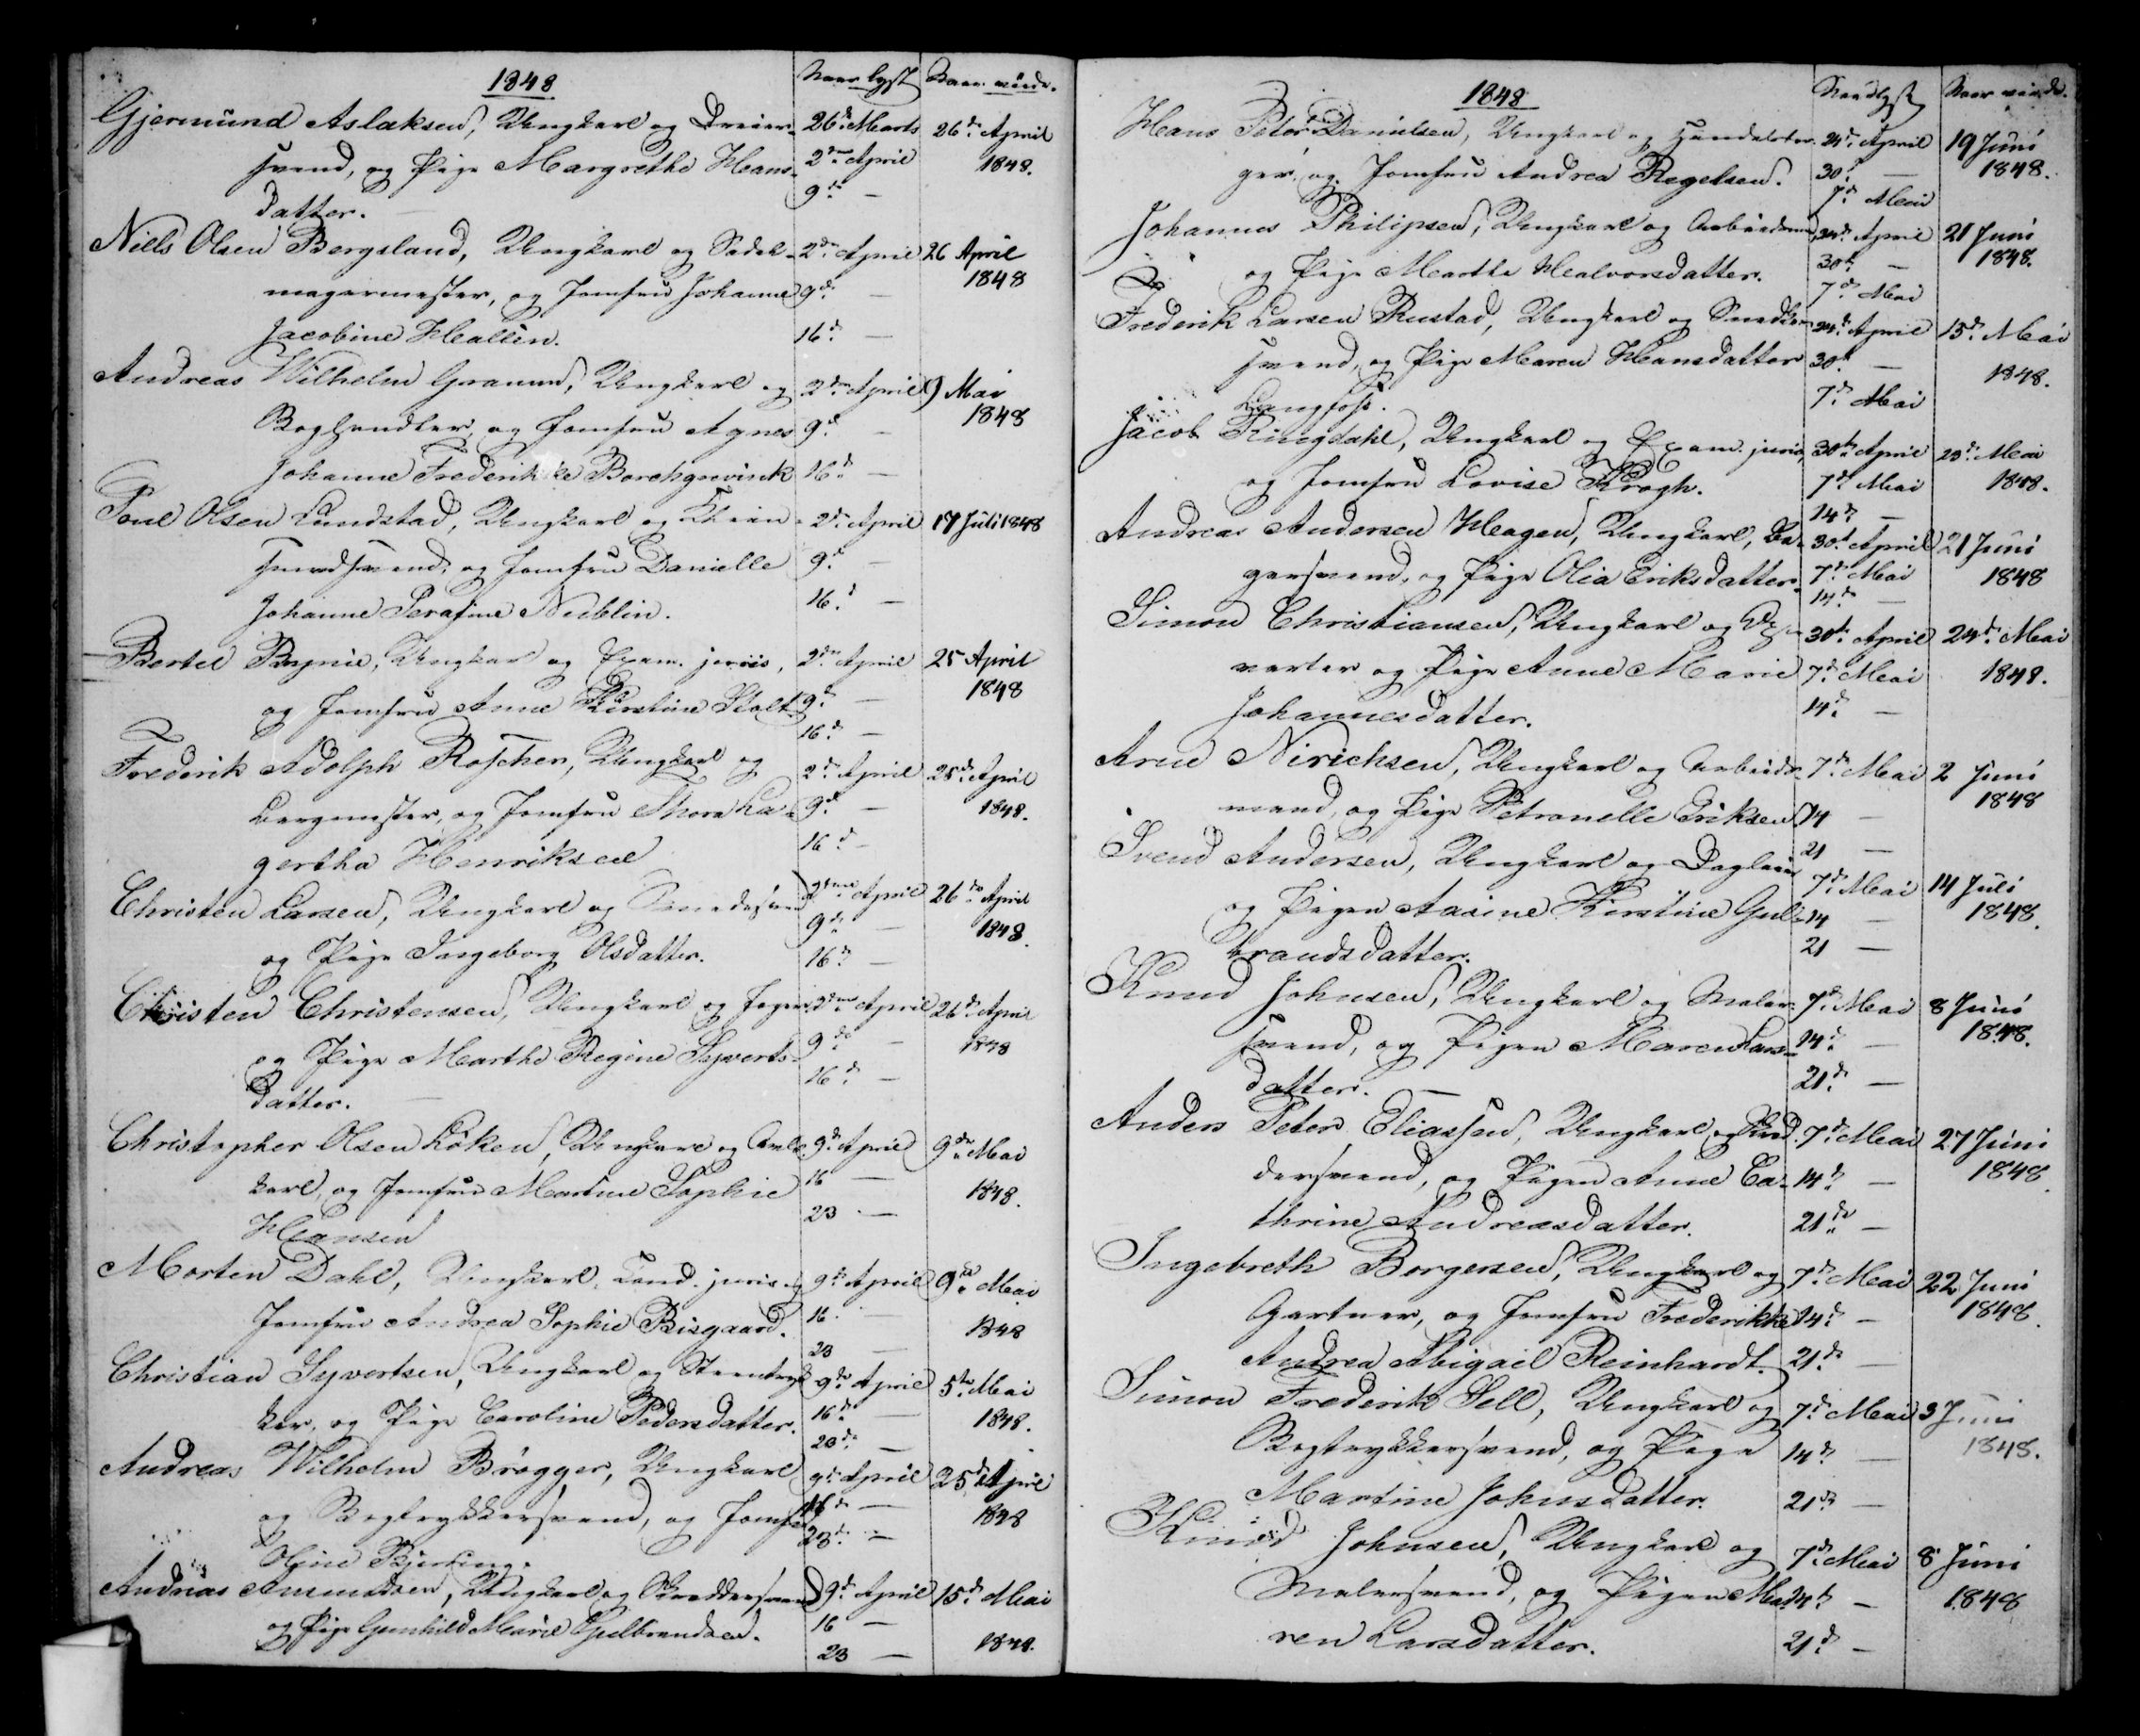 1848 Naar lyst Naar viede.
Gjermund Aslaksen, Ungkarl og Dreier- 26de Marts 26de April
svend, og Pige Margrethe Hans- 2den April 1848.
datter. 9de —
Niels Olsen Bergsland, Ungkarl og Sadel- 2den April 26 April
magermester, og Jomfru Johanne 9de — 1848
Jacobine Hallin. 16de —
Andreas Wilhelm Gramm, Ungkarl og 2den April 9 Mai
Boghandler, og Jomfru Agnes 9de — 1848
Johanne Frederikke Borchgrevink 16de —
Poul Olsen Lundstad, Ungkarl og 2den April 17 Juli 1848
smedsvend, og Jomfru Danielle 9de —
Johanne Serafine Nublin. 16de —
Bertel Ungkarl og Exam. juris, 2den April 25 April
og Jomfru Anne Kirstine Holt. 9de — 1848
16de —
Frederik Adolph Roscher, Ungkarl og 2den April 25de April
Bergmester, og Jomfru Thora La- 9de — 1848.
gertha Henriksen 16de —
Christen Larsen, Ungkarl og Smedesvend 2den April 26de April
og Pige Ingeborg Olsdatter. 9de — 1848.
16de —
Christen Christensen, Ungkarl og 2den April 26de April
og Pige Marthe Regine Syverts- 9de — 1848
datter. 16de —
Christopher Olsen Løken, Ungkarl og 9de April 9de Mai
karl, og Jomfru Martine Sophie 16 — 1848.
Hansen 23 —
Morten Dahl, Ungkarl, Cand. juris og 9de April 9de Mai
Jomfru Andrea Sophie Bisgaard. 16 — 1848
23 —
Christian Syvertsen, Ungkarl og Steentryk- 9de April 5te Mai
ker, og Pige Caroline Pedersdatter. 16de — 1848.
23de —
Andreas Wilhelm Brøgger, Ungkarl 9de April 25de April
og Bogtrykkersvend, og Jomfru 16de — 1848
Oline Bjerring. 23de —
Andreas Amundsen, Ungkarl og Skreddersvend 9de April 15de Mai
og Pige Gunhild Marie Gulbrandsen. 16 — 1848.
23 —
1848 Naar lyst Naar viede.
Hans Peter Danielsen, Ungkarl og Handelsbor- 24de April 19 Juni
ger, og Jomfru Andrea Regelsen. 30te — 1848.
7de Mai
Johannes Philipsen, Ungkarl og Arbeidsmand, 24de April 21 Juni
og Pige Marthe Halvorsdatter. 30te — 1848.
7de Mai
Frederik Larsen Rustad, Ungkarl og Snedker- 24de April 15de Mai
svend, og Pige Maren Hansdatter 30te — 1848.
Langfos. 7de Mai
Jacob Ringdahl, Ungkarl og Exam. juris, 30te April 23de Mai
og Jomfru Lovise Krogh. 7de Mai 1848.
14de —
Andreas Andersen Hagen, Ungkarl, Ba- 30te April 21 Juni
gersvend, og Pige Olia Eriksdatter. 7de Mai 1848
14de —
Simon Christiansen, Ungkarl og 30te April 24de Mai
varter og Pige Anne Marie 7de Mai 1848.
Johannesdatter. 14de —
Arne Nirichsen, Ungkarl og Arbeids- 7de Mai 2 Juni
mand, og Pige Petronelle Eriksen 14 — 1848
21 —
Svend Andersen, Ungkarl og Dagleier 7de Mai 14 Juli
og Pigen Aasine Kirstine Gul- 14 — 1848.
brandsdatter. 21 —
Knud Johnsen, Ungkarl og Maler- 7de Mai 8 Juni
svend, og Pigen Maren Lars- 14de — 1848.
datter. 21de —
Anders Peter Eliassen, Ungkarl og Skred- 7de Mai 27 Juni
dersvend, og Pigen Anne Ca- 14de — 1848.
thrine Andreasdatter. 21de —
Ingebreth Borgersen, Ungkarl og 7de Mai 22 Juni
Gartner, og Jomfru Frederikke 14de — 1848.
Andrea Abigail Reinhardt. 21de —
Simon Frederik Sell, Ungkarl og 7de Mai 3 Juni
Bogtrykkersvend, og Pige 14de — 1848.
Martine Johnsdatter. 21de —
Knud Johnsen, Ungkarl og 7de Mai 8 Juni
Malersvend, og Pigen Ma- 14de — 1848
ren Larsdatter. 21de —